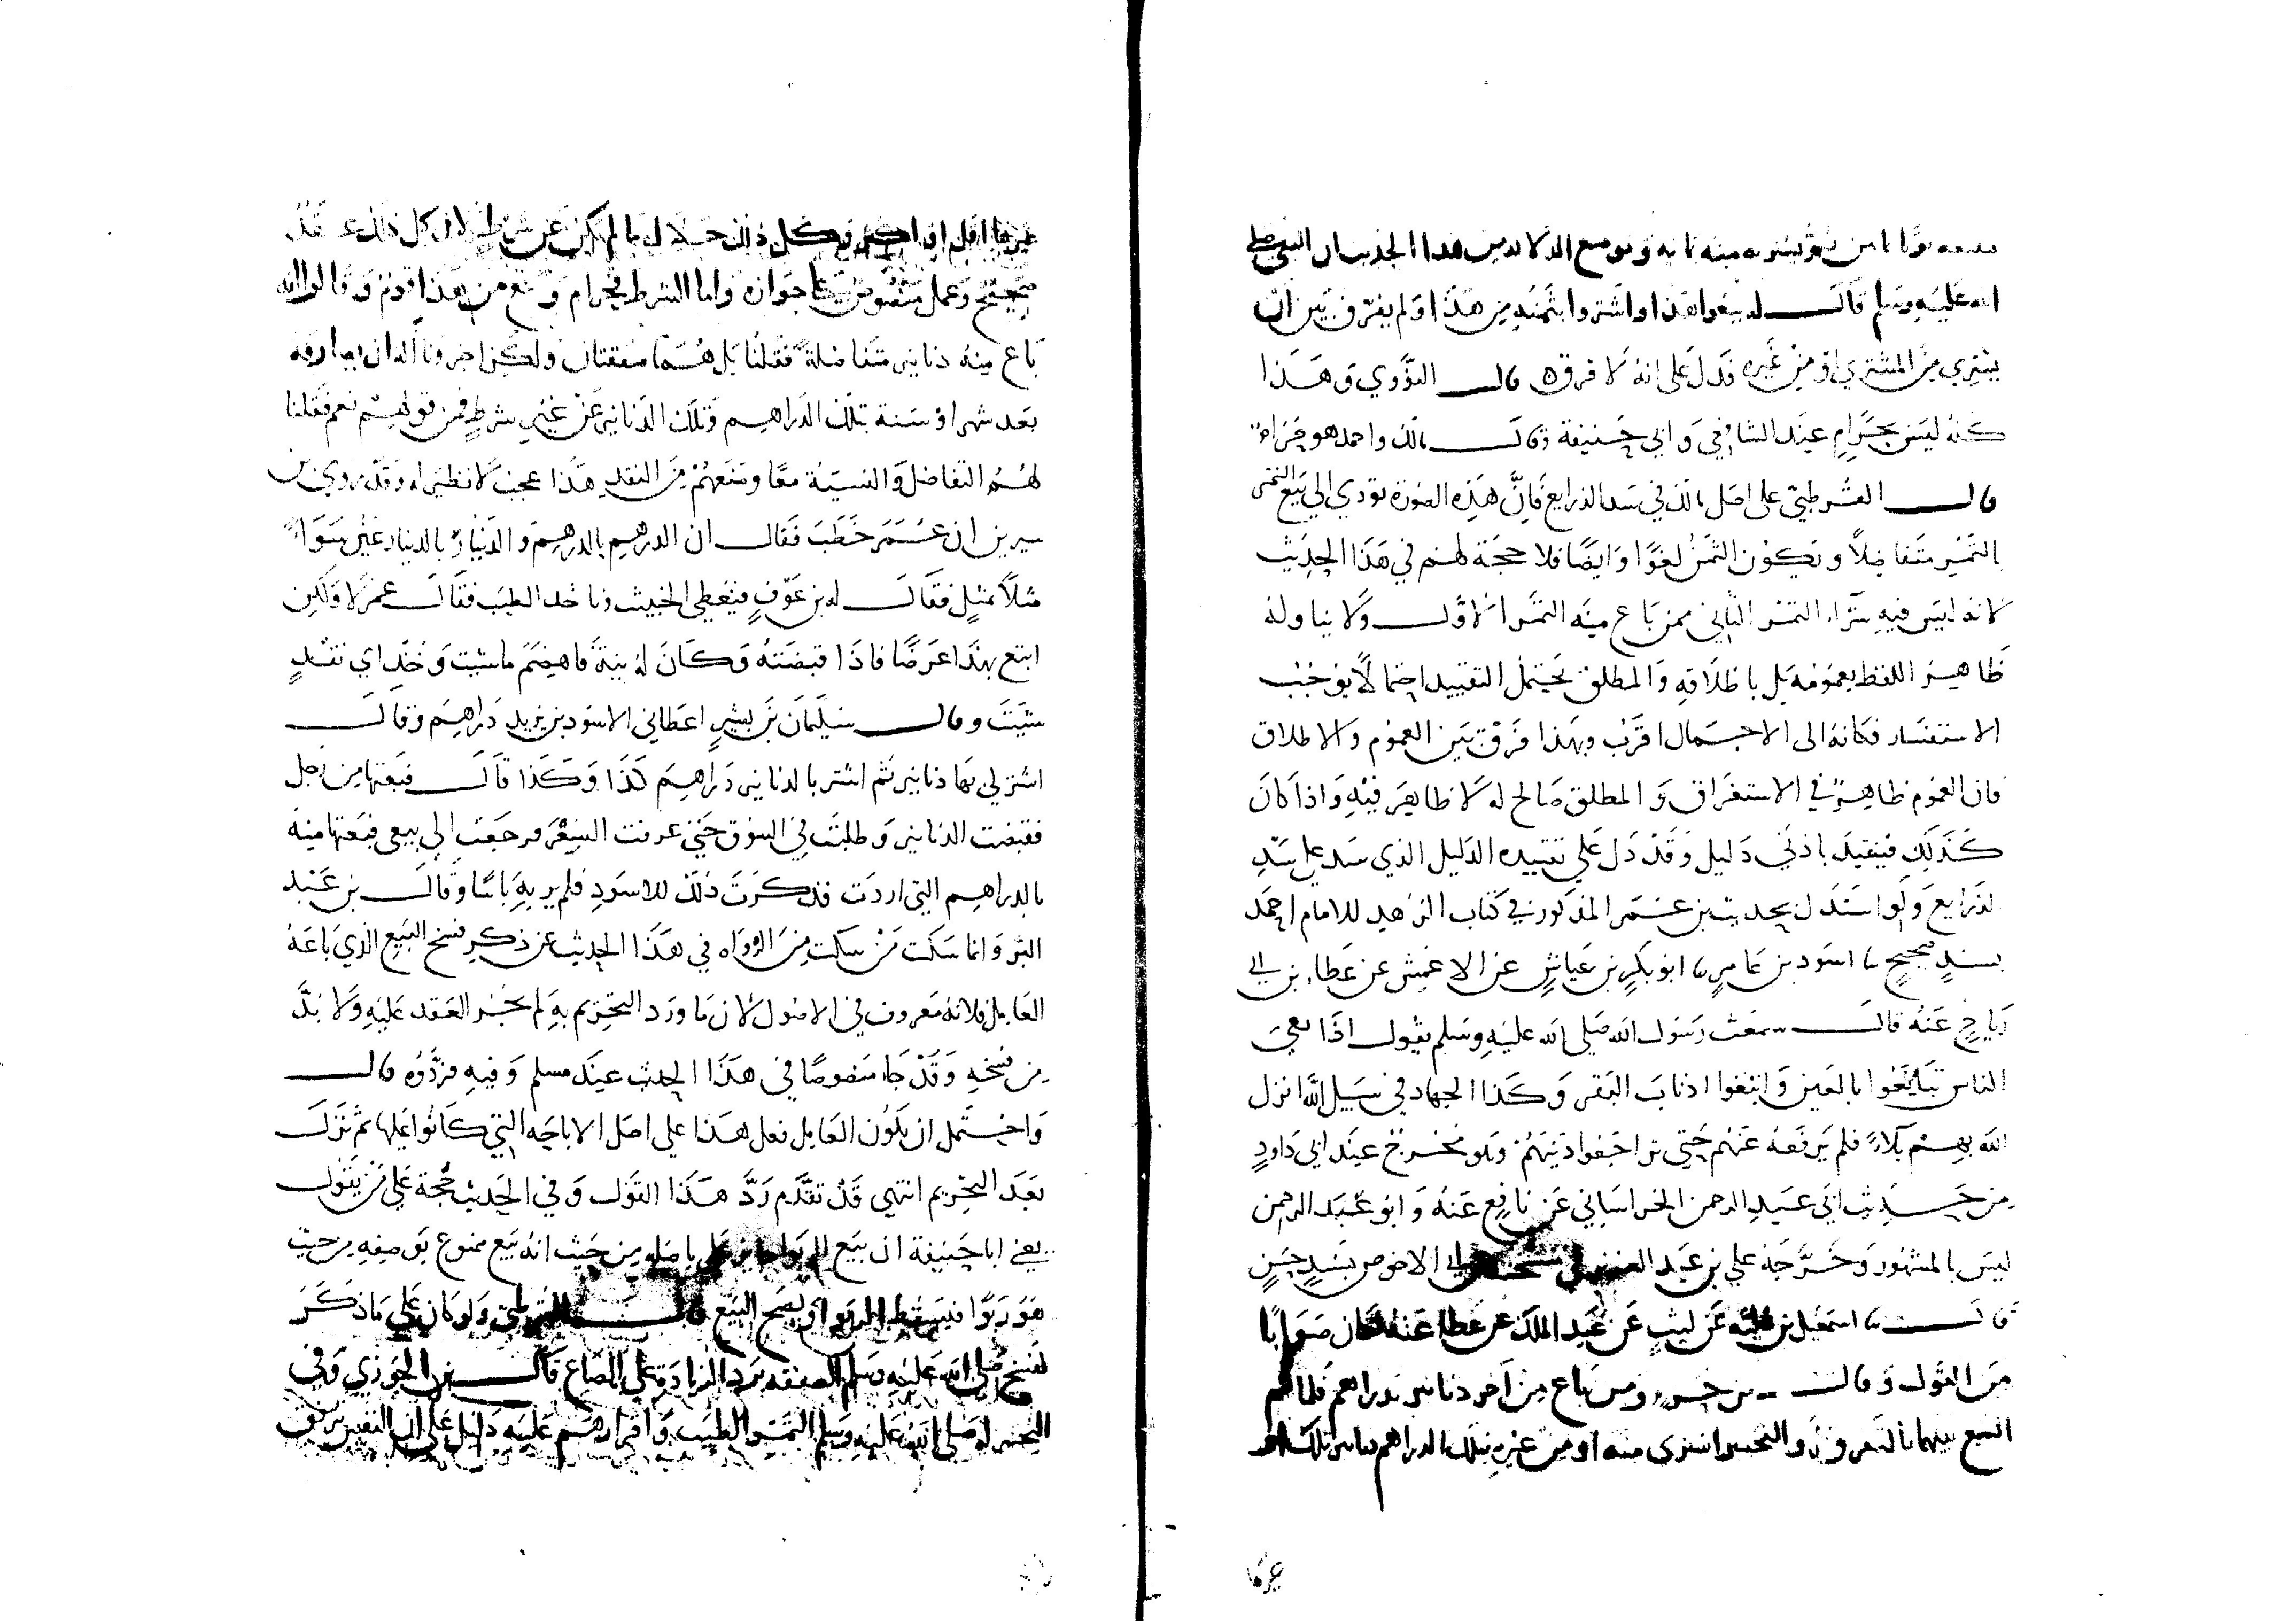 وموضع الدلالة من هذا الحديث ان النبي صلى
الله عليه وسلم قال له بيعوا هذا واشتروا بثمنه من هذا ولم يفرق بين ان
يشتري من المشتري او من غيره فدل على انه لا فرق قال النووي وهذا
كله ليس بحرام عند الشافعي وابي حنيفة وقال مالك واحمد هو حرام
قال القرطبي على اصل مالك في سد الذرايع فان هذه الصورة تودي الي بيع التمر
بالتمر متفاضلا ويكون الثمن لغوا وايضا فلا حجة لهم في هذا الحديث
لانه ليس فيه شراء التمر الثاني ممن باع منه التمر الاول ولا يتناوله
ظاهر اللفظ بعمومه بل باطلاقه والمطلق يحتمل التقييد احتمالا يوجب
الاستفسار فكانه الى الاجمال اقرب وبهذا فرق بين العموم والاطلاق
فان العموم ظاهر في الاستغراق والمطلق صالح له لا ظاهر فيه واذا كان
كذلك فيتقيد باذني دليل وقد دل علي تقييده الدليل الذي سد علي سد
لذرايع ولو استدل بحديث بن عمر المذكور في كتاب الزهد للامام احمد
بسند صحيح ثنا اسود بن عامر ثنا ابو بكر بن عياش عن الاعمش عن عطاء بن ابي
رباح عنه قال سمعت رسول الله صلى الله عليه وسلم يقول اذا يعني
الناس تبايعوا بالعين واتبعوا اذناب البقر وكذا الجهاد في سبيل الله انزل
الله بهم بلاء فلم يرفعه عنهم حتي يراجعوا دينهم وهو مخرج عند ابي داود
من حديث ابي عبد الرحمن الخراساني عن نافع عنه وابو عبد الرحمن
ليس بالمشهور وخرجه علي بن عبد العزيز في الاحوص بسند حسن
قال ثنا اسمعيل بن علية عن ليث عن عبد الملك عن عطا عنه لكان صوابا
من القول وقال بن حزم ومن باع من آخر دنانير بدراهم فلما تم
البيع بينهما بالتفرق او التخيير اشترى منه او من غيره بتلك الدراهم دنانير تلك او
غيرها
غيرها اقل او اكثر فكل ذلك حلال ما لم يكن عن شرط لان كل ذلك عقد
صحيح وعمل منصوص علي جوازه واما الشرط فحرام ومنع من هذا قوم وقالوا انه
باع منه دنانير متفاضلة فقلنا بل هما صفقتان ولكن اخبرونا
بعد شهر او سنة بتلك الدراهم وتلك الدنانير عن غير شرط فمن قولهم نعم فقلنا
لهم التفاضل والنسيئة معا ومنعهم من النقد هذا عجب لا نظير له وقد روي بن
سيرين ان عمر خطب فقال ان الدرهم بالدرهم والدينار بالدينار عين سواء
مثلا بمثل فقال له بن عوف فيعطي الخبيث وناخذ الطيب فقال عمر لا ولكن
ابتع بهذا عرضا فاذا قبضته وكان له بينة فاهضم ما شيت وخذ اي نقد
شيت وقال سليمان بن بشير اعطاني الاسود بن يزيد دراهم وقال
اشتر لي بها دنانير ثم اشتر بالدنانير دراهم كذا وكذا قال فبعتها من رجل
فقبضت الدنانير وطلبت في السوق حتى عرفت السعر فرجعت الي بيعي فبعتها منه
بالدراهم التي اردت فذكرت ذلك للاسود فلم ير به باسا وقال بن عبد
البر وانما سكت من سكت من الرواه في هذا الحديث عن ذكر فسخ البيع الذي باعه
العامل فلانه معروف في الاصول لان ما ورد التحريم به لم يجز العقد عليه ولا بد
من فسخه وقد جاء منصوصا في هذا الحديث عند مسلم وفيه فردوه قال
واحتمل ان يكون العامل فعل هذا علي اصل الاباحه التي كانوا عليها ثم نزل
بعد التحريم انتهي قد تقدم رد هذا القول وفي الحديث حجة علي من يقول
يعني ابا حنيفة ان بيع الربوا جايز باصله من حيث انه بيع ممنوع بوصفه من حيث
هو ربوا فيسقط الربوا ويصح البيع قال القرطبي ولو كان علي ما ذكر
لفسخ صلى الله عليه وسلم الصفقه برد الزيادة علي الصاع قال بن الجوزي وفي
صلى الله عليه وسلم التمر الطيب واقرارهم عليه دليل علي ان النفس يرفق